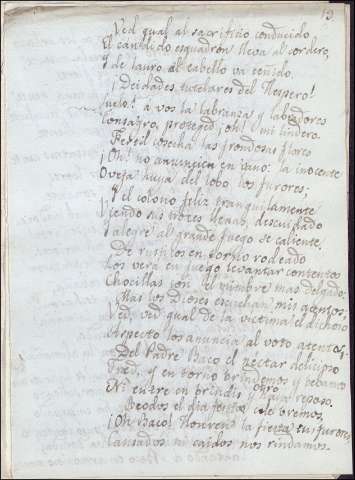 13
Ved qual al sacrificio conducido
El candido esquadron lleva al cordero,
Y de lauro el cabello va ceñido.
¡Deidades tutelares del Hespero!
suelo! á vos la labranza y labradores
Consagro, proteged ¡oh! mi lindero.
Fertil cosecha las frondosas flores
¡Oh! no anuncien en vano: la inocente
Oveja huya del lobo los furores;
Y el colono feliz tranquilamente
Viendo sus troxes llenas, descuidado
y alegre al grande fuego se caliente.
De rusticos en torno rodeado
Los verá en juego levantar contentos
Chocillas con el mimbre mas delgado.
Mas los Dioses escuchan mis acentos;
Ved, ved qual de la victima el dichoso
Aspecto los anuncia al voto atentos.
Del Padre Baco el nectar delicioso
Traed, y en torno brindemos y bebamos
Ni entre en brindis y otro haya reposo.
Beodos el dia festivo celebremos,
¡Oh Baco! Honren la fiesta tus furores
Cansados ni caidos nos rindamos.